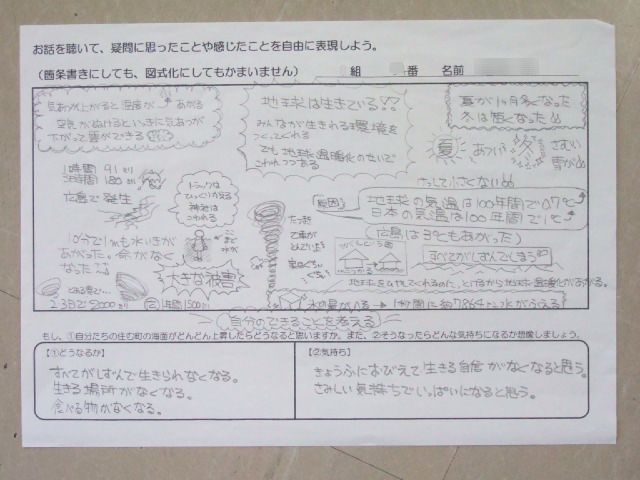 お話を聴いて、疑問に思ったことや感じたことを自由に表現しよう。
(箇条書きにしても、図式化にしてもかまいません)
組 番 名前
気おんが上がると湿度が あがる
空気がぬけるといっきに気おんが
下がって雲ができる
地球は生きている!?
みんなが生きれる環境を
つくってくれる
でも地球温暖化のせいで
こわれつつある
夏が1ヶ月多くなった
冬は短くなった
夏 あつい 冬 さむい
雪が
1時間 91
3時間 180
広島で発生
トラックは
ひっくりかえる
神社は
こわれる
10分で1mも水いきが
あがった。命がなく
なった
ここまで水が
大きな被害
2日で2000
1時間1500
たつまき
原因
けっして小さくない
地球の気温は100年間で0.7℃
日本の気温は100年間で1℃
(広島は3℃もあがった)
すべてがしずんでしまう
1秒間に約7864トン水がふえる
自分のできることを考える
もし、①自分たちの住む町の海面がどんどん上昇したらどうなると思いますか。また、②そうなったらどんな気持ちになるか想像しましょう。
【①どうなるか】
すべてがしずんで生きられなくなる。
生きる場所がなくなる。
食べる物がなくなる。
【②気持ち】
きょうふにおびえて生きる自信がなくなると思う。
さみしい気持ちでいっぱいになると思う。